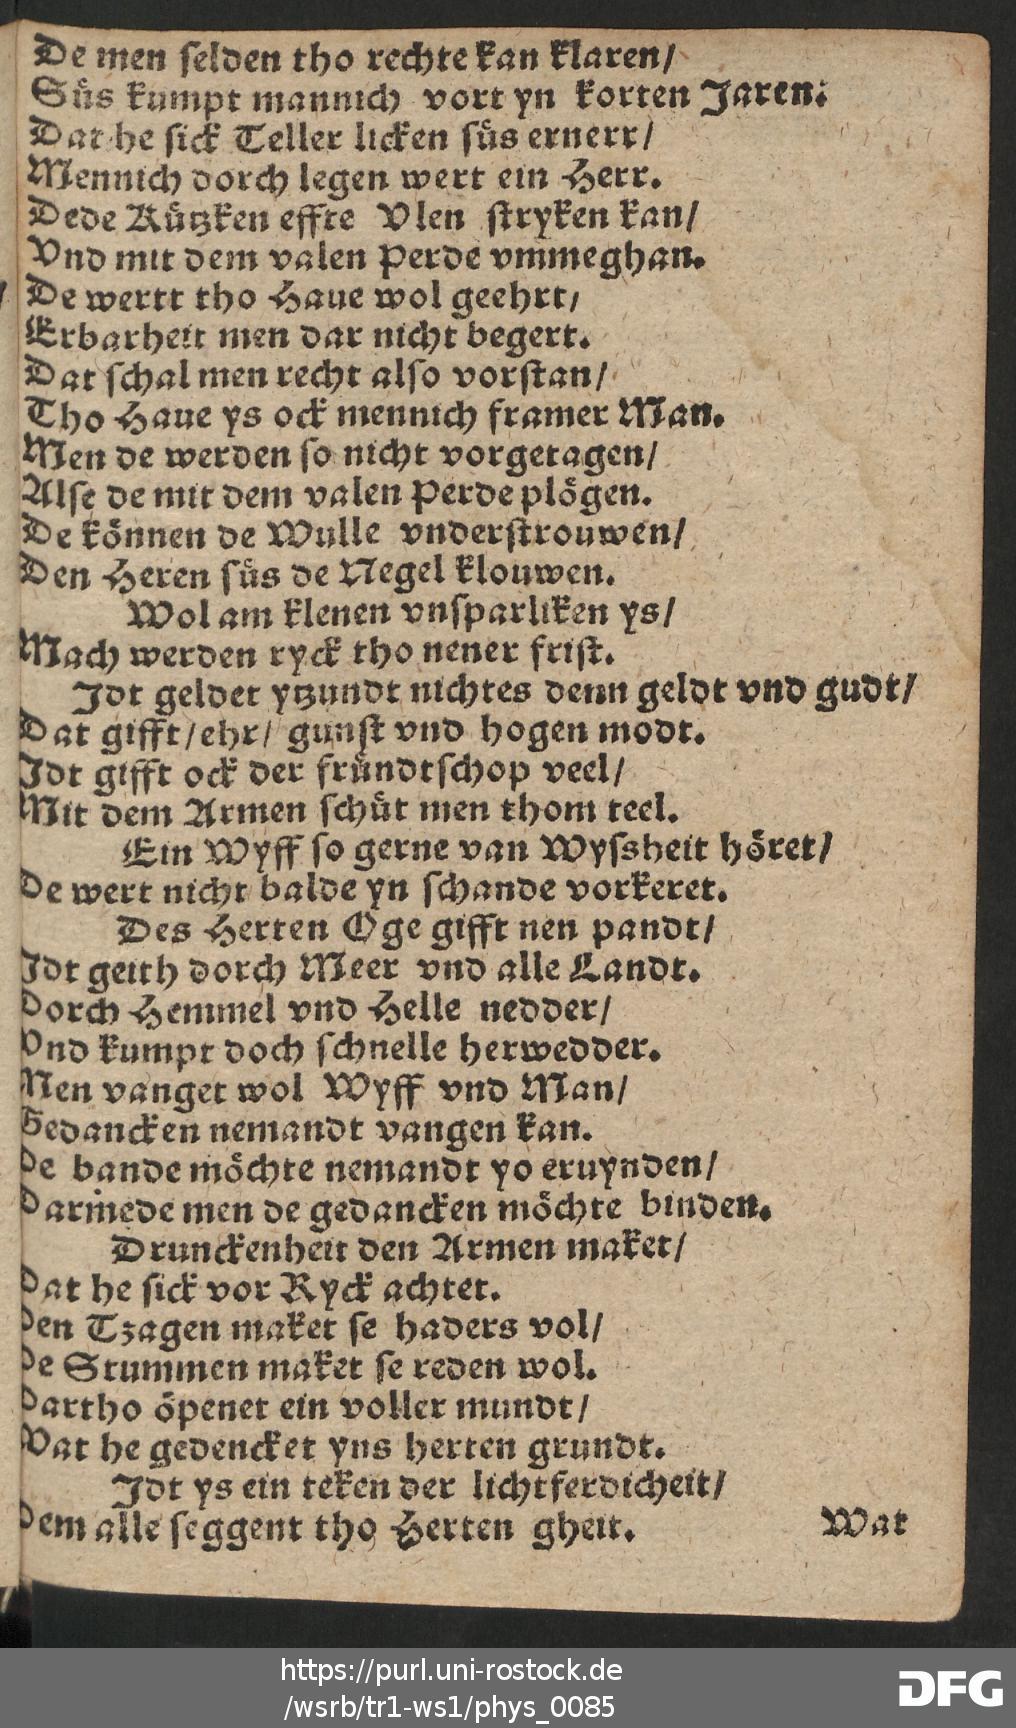 De men selden tho rechte kan klaren/
Süs kumpt mannich vort yn korten Jaren:
Dat he sick Teller licken süs ernerr/
Mennich dorch legen wert ein Herr.
Dede Kützken effte Vlen stryken kan/
Vnd mit dem valen Perde vmmeghan.
De wertt tho Haue wol geehrt/
Erbarheit men dar nicht begert.
Dat schal men recht also vorstan/
Tho Haue ys ock mennich framer Man.
Men de werden so nicht vorgetagen/
Alse de mit dem valen Perde plögen.
De können de Wulle vnderstrouwen/
Den Heren süs de Negel klouwen.
Wol am klenen vnsparliken ys/
Mach werden ryck tho nener frist.
Jdt geldet ytzundt nichtes denn geldt vnd gudt/
Dat gifft/ehr/ gunst vnd hogen modt.
Jdt gifft ock der fründtschop veel/
Mit dem Armen schüt men thom teel.
Ein Wyff so gerne van Wyssheit höret/
De wert nicht balde yn schande vorkeret.
Des Herten Oge gifft nen pandt/
Jdt geith dorch Meer vnd alle Landt.
Dorch Hemmel vnd Helle nedder/
Vnd kumpt doch schnelle herwedder.
Men vanget wol Wyff vnd Man/
Gedancken nemandt vangen kan.
De bande möchte nemandt yo eruynden/
Darmede men de gedancken möchte binden.
Drunckenheit den Armen maket/
Dat he sick vor Ryck achtet.
Den Tzagen maket se haders vol/
De Stummen maket se reden wol.
Dartho öpenet ein voller mundt/
Wat he gedencket yns herten grundt.
Jdt ys ein teken der lichtferdicheit/
Dem alle seggent tho Herten gheit.
Wat
https://purl.uni-rostock.de
/wsrb/tr1-ws1/phys_0085
DFG